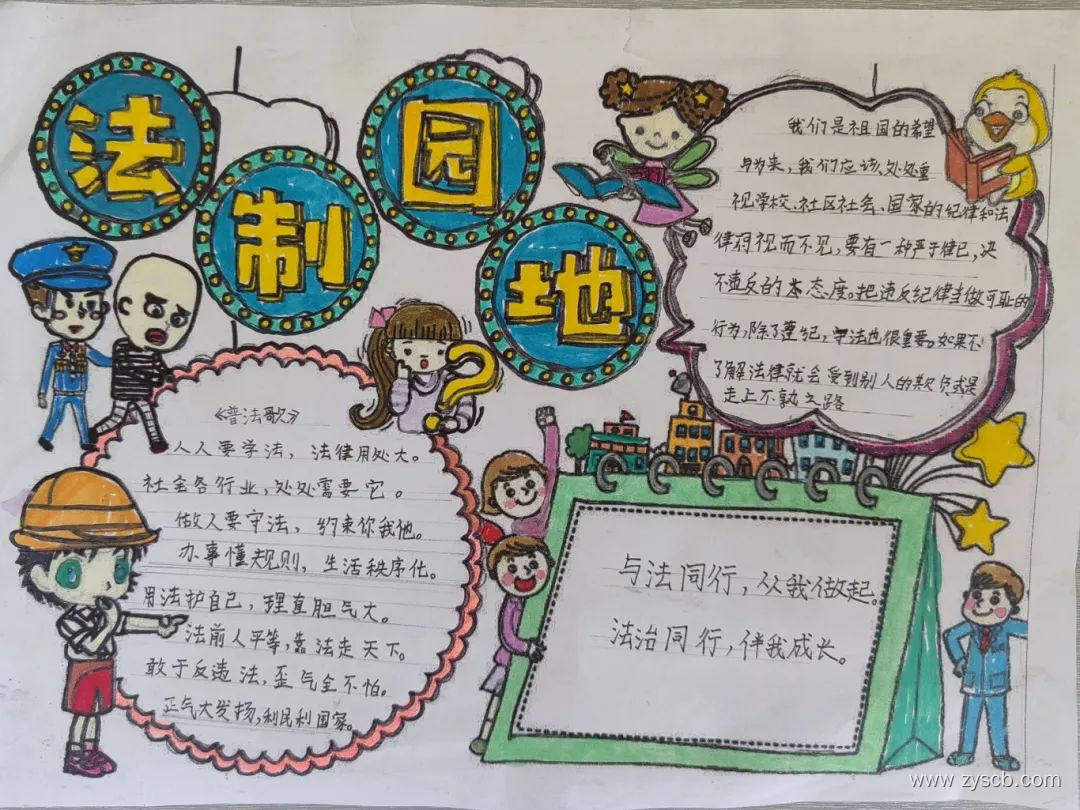 法制园地
我们是祖国的希望
与未来,我们应该处处重
视学校、社区社会、国家的纪律和法
律府视而不见,要有一种严于律己,决
不违反的本态度。把违反纪律当做可耻的
行为,除了遵纪,守法也很重要。如果不
了解法律就会受到别人的欺负或是
走上不归之路
《普法歌》
人人要学法,法律用处大。
社会各行业,处处需要它。
做人要守法,约束你我他。
办事懂规则,生活秩序化。
用法护自己,理直胆气大。
法前人平等,靠法走天下。
敢于反违法,歪气全不怕。
正气大发扬,利民利国家。
与法同行,从我做起。
法治同行,伴我成长。
www.zyscb.com